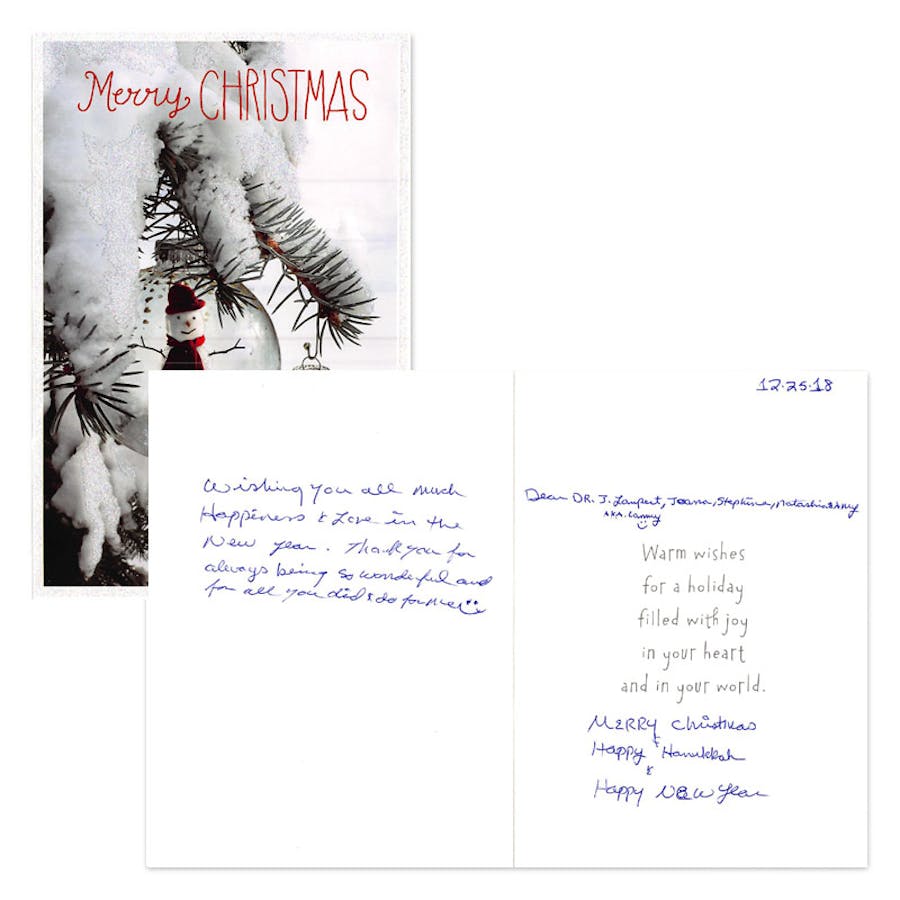 Merry CHRISTMAS
12.25.18
Wishing you all much
Happiness & Love in the
New year. Thank you for
always being so wonderful and
for all you did & do for me
Dear DR. J. Lampert, Joana, Stephine, Natashia & Amy
AKA.
Warm wishes
for a holiday
filled with joy
in your heart
and in your world.
MERRY Christmas
&
Happy Hanukkah
&
Happy New Year